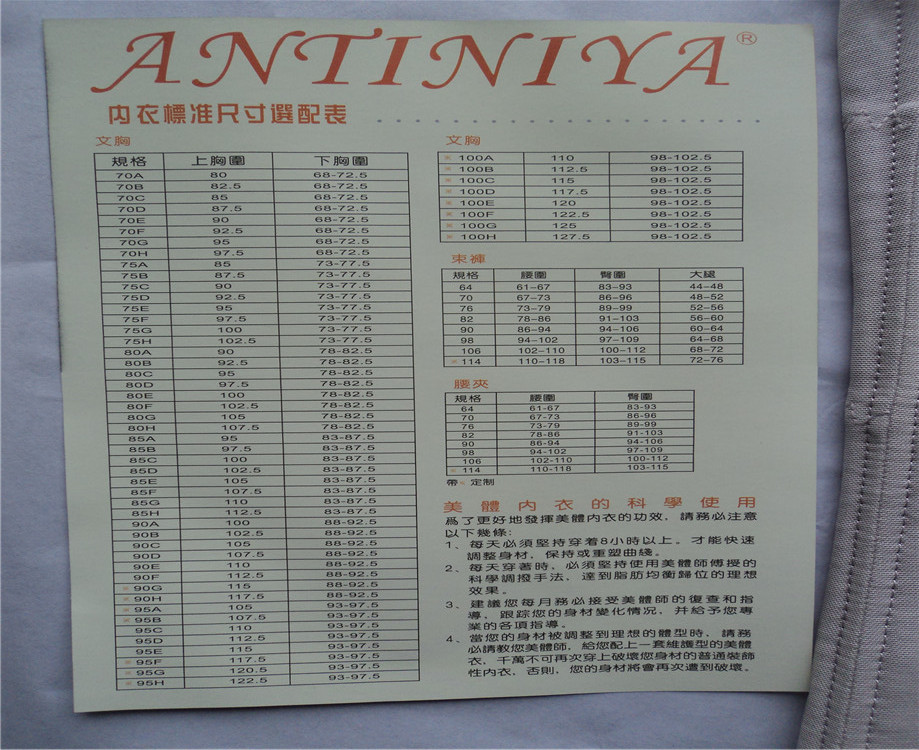 ANTINIYA®
內衣標准尺寸選配表
文胸
規格 上胸圍 下胸圍
70A 80 68-72.5
70B 82.5 68-72.5
70C 85 68-72.5
70D 87.5 68-72.5
70E 90 68-72.5
70F 92.5 68-72.5
70G 95 68-72.5
70H 97.5 68-72.5
75A 85 73-77.5
75B 87.5 73-77.5
75C 90 73-77.5
75D 92.5 73-77.5
75E 95 73-77.5
75F 97.5 73-77.5
75G 100 73-77.5
75H 102.5 73-77.5
80A 90 78-82.5
80B 92.5 78-82.5
80C 95 78-82.5
80D 97.5 78-82.5
80E 100 78-82.5
80F 102.5 78-82.5
80G 105 78-82.5
80H 107.5 78-82.5
85A 95 83-87.5
85B 97.5 83-87.5
85C 100 83-87.5
85D 102.5 83-87.5
85E 105 83-87.5
85F 107.5 83-87.5
85G 110 83-87.5
85H 112.5 83-87.5
90A 100 88-92.5
90B 102.5 88-92.5
90C 105 88-92.5
90D 107.5 88-92.5
90E 110 88-92.5
90F 112.5 88-92.5
※ 90G 115 88-92.5
※ 90H 117.5 88-92.5
※ 95A 105 93-97.5
※ 95B 107.5 93-97.5
95C 110 93-97.5
95D 112.5 93-97.5
95E 115 93-97.5
※ 95F 117.5 93-97.5
※ 95G 120.5 93-97.5
※ 95H 122.5 93-97.5
文胸
※ 100A 110 98-102.5
※ 100B 112.5 98-102.5
※ 100C 115 98-102.5
※ 100D 117.5 98-102.5
※ 100E 120 98-102.5
※ 100F 122.5 98-102.5
※ 100G 125 98-102.5
※ 100H 127.5 98-102.5
束褲
規格 腰圍 臀圍 大腿
64 61-67 83-93 44-48
70 67-73 86-96 48-52
76 73-79 89-99 52-56
82 78-86 91-103 56-60
90 86-94 94-106 60-64
98 94-102 97-109 64-68
106 102-110 100-112 68-72
※ 114 110-118 103-115 72-76
腰夾
規格 腰圍 臀圍
64 61-67 83-93
70 67-73 86-96
76 73-79 89-99
82 78-86 91-103
90 86-94 94-106
98 94-102 97-109
106 102-110 100-112
※ 114 110-118 103-115
帶※ 定制
美體內衣的科學使用
爲了更好地發揮美體內衣的功效，請務必注意
以下幾條:
1、每天必須堅持穿着8小時以上。才能快速
調整身材，保持或重塑曲綫。
2、每天穿著時，必須堅持使用美體師傅授的
科學調撥手法，達到脂肪均衡歸位的理想
效果。
3、建議您每月務必接受美體師的復查和指
導，跟踪您的身材變化情況，并給予您專
業的各項指導。
4、當您的身材被調整到理想的體型時，請務
必請教您美體師，給您配上一套維護型的美體
衣，千萬不可再次穿上破壞您身材的普通裝飾
性內衣，否則，您的身材將會再次遭到破壞。